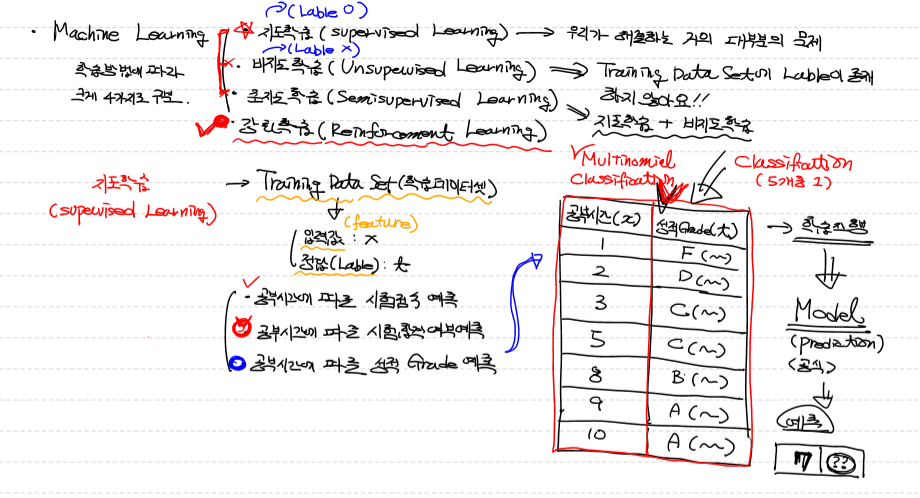 (Lable O)
· Machine Learning
지도학습 (supervised Learning) → 우리가 해결하는 거의 대부분의 문제
(Lable X)
· 비지도학습 (Unsupervised Learning) ⇒ Training Data Set에 Lable이 존재
하지 않아요!!
학습방법에 따라
크게 4가지로 구분.
· 준지도학습 (Semisupervised Learning) ⇒ 지도학습 + 비지도학습
· 강화학습 (Reinforcement Learning)
지도학습
(supervised Learning)
→ Training Data Set (학습데이터셋)
(feature)
입력값 : x
정답(Lable) : t
· 공부시간에 따른 시험점수 예측
공부시간에 따른 시험합격 여부예측
공부시간에 따른 성적 Grade 예측
Multinomial
Classification
Classification
(5개중 1)
공부시간(x) 성적Grade(t)
1 F(~)
2 D(~)
3 C(~)
5 C(~)
8 B(~)
9 A(~)
10 A(~)
→ 학습진행
Model
(prediction)
(공식)
예측
7 ??